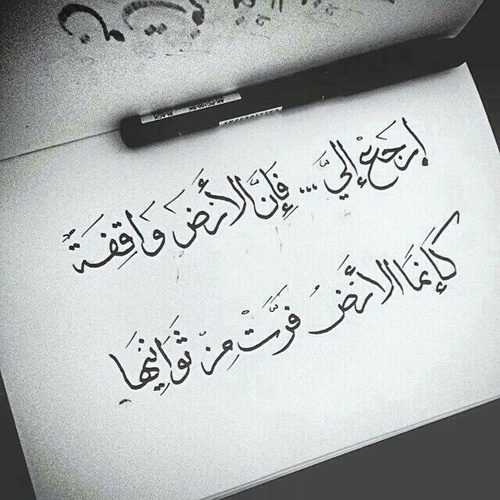 إرجع إليَّ ... فإنَّ الأرضَ واقِفَةٌ
كأنما الأرضُ فرَّت مِنْ ثوانيها